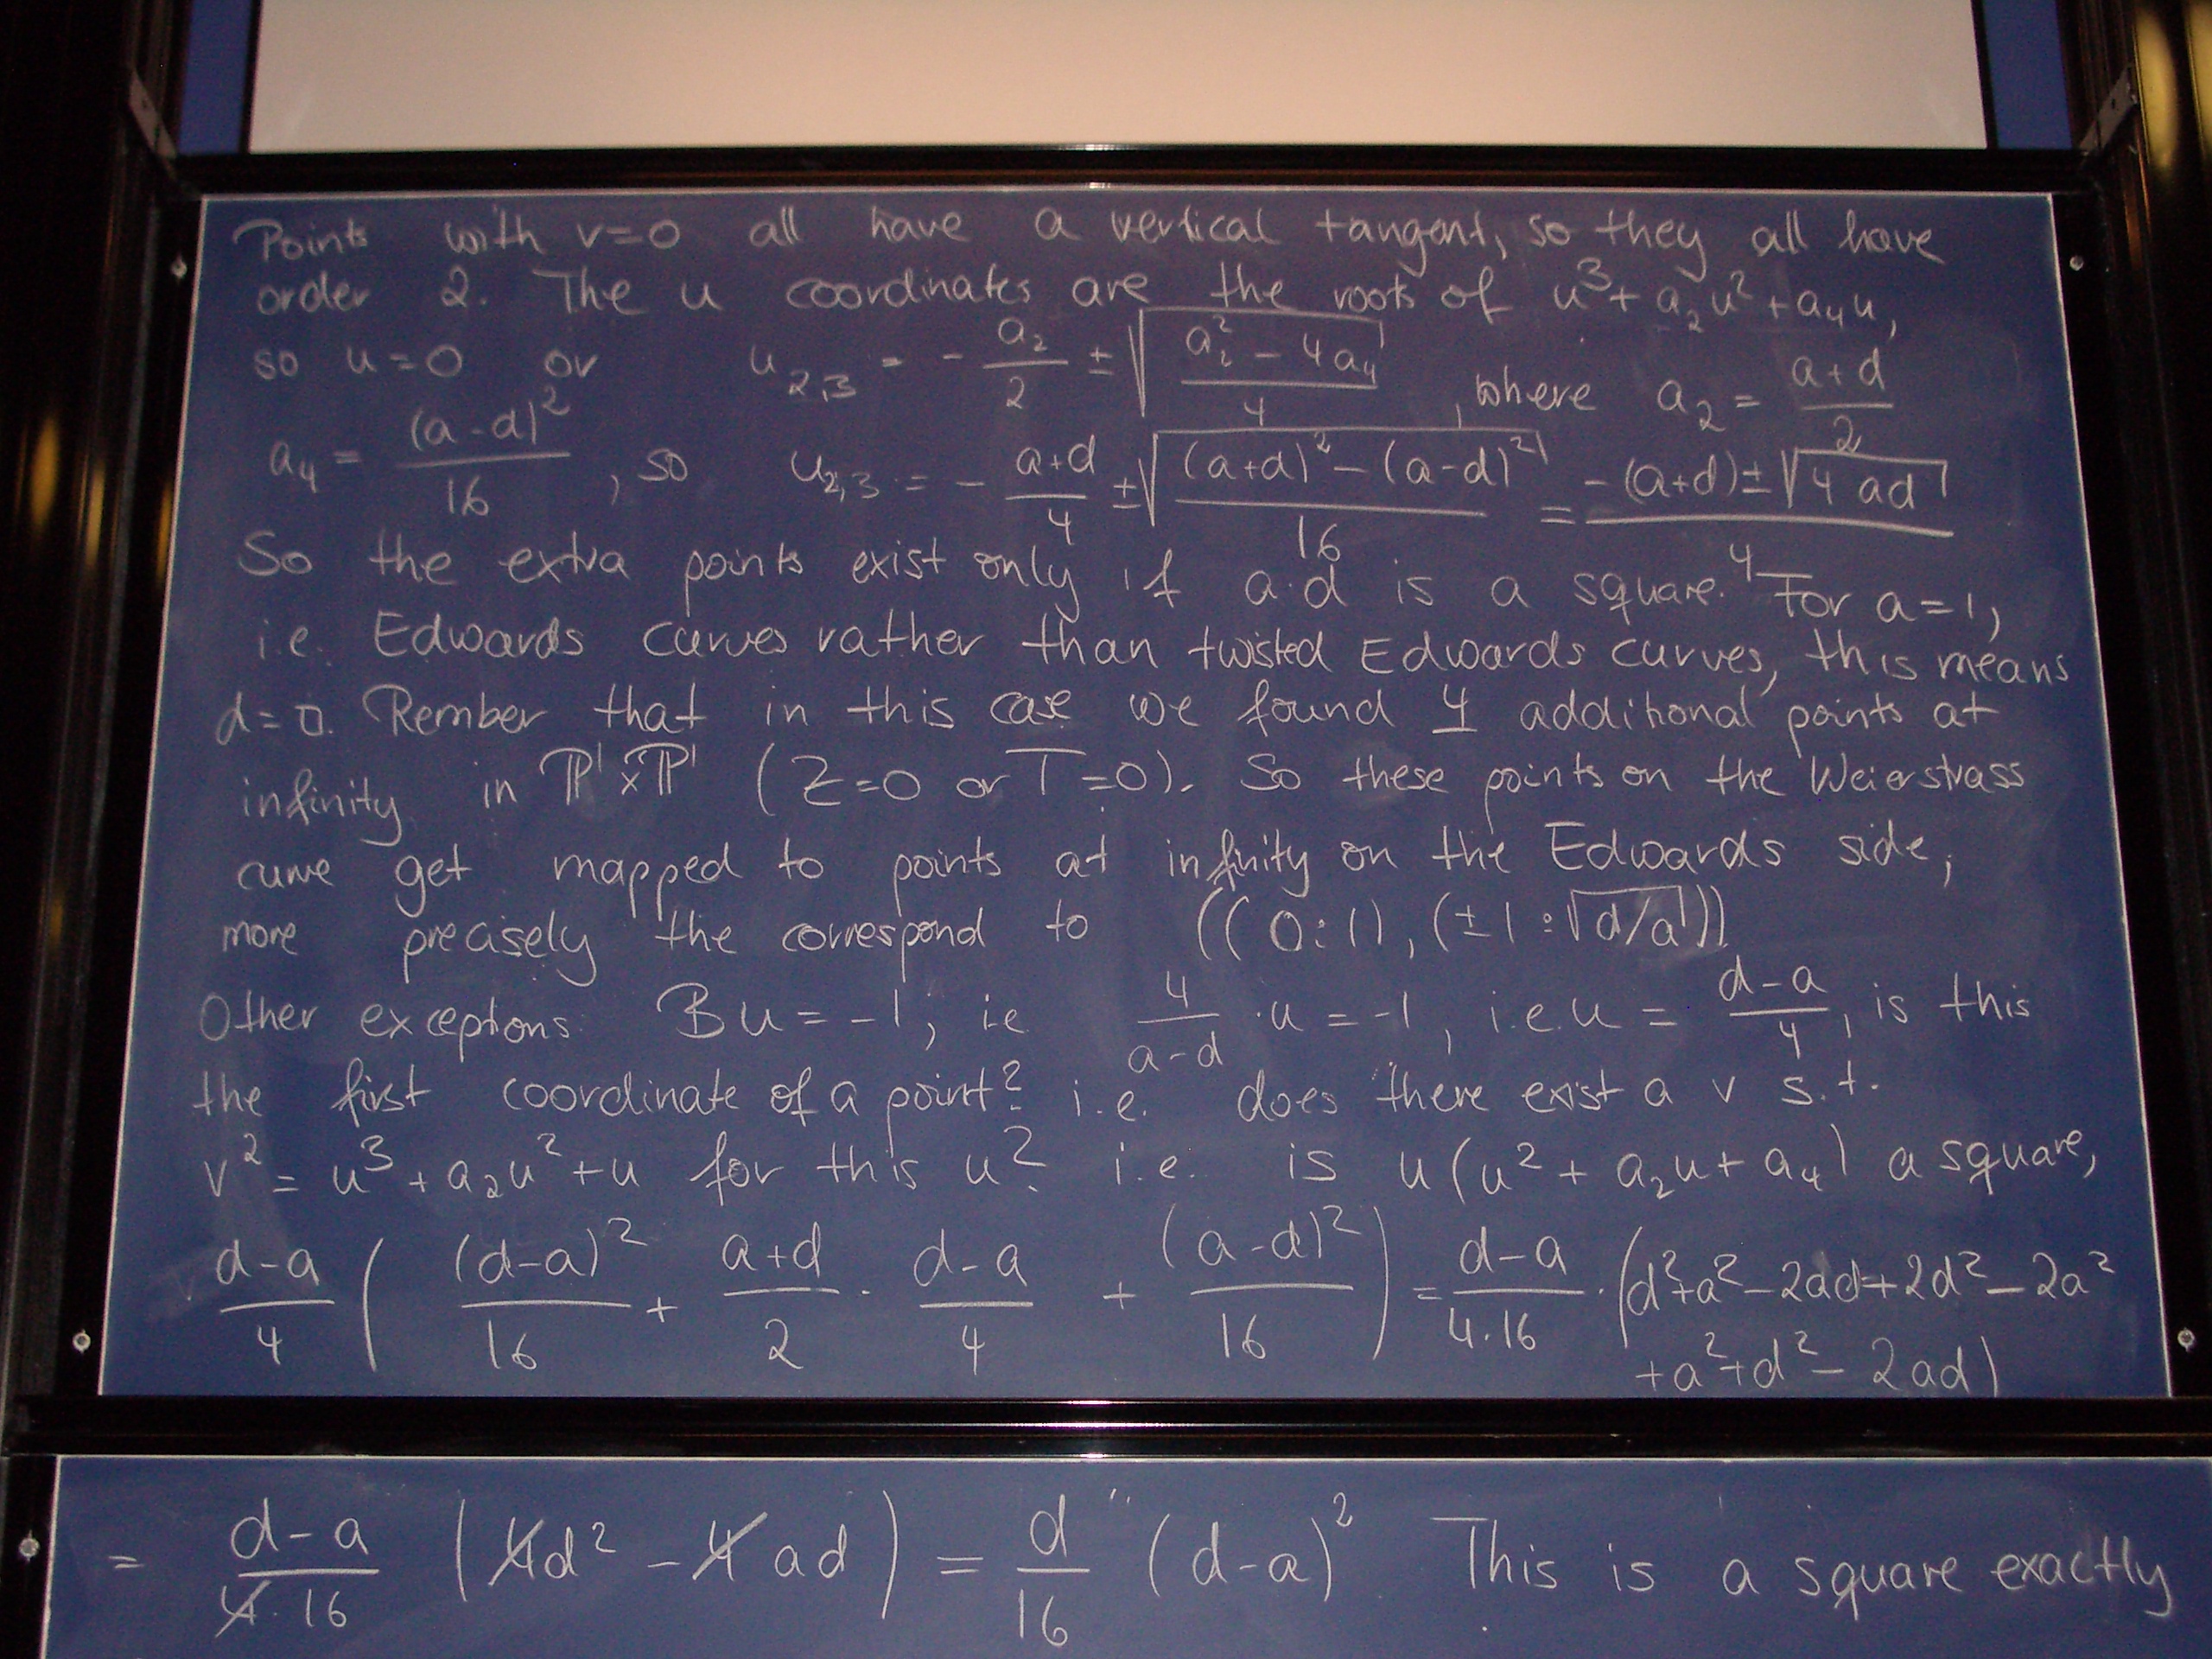 Points with v=0 all have a vertical tangent, so they all have
order 2. The u coordinates are the roots of u³+a₂u²+a₄u,
so u=0 or u₂,₃ = -a₂/2 ± √((a₂²-4a₄)/4), where a₂ = (a+d)/2
a₄ = (a-d)²/16, so u₂,₃ = -(a+d)/4 ± √(((a+d)²-(a-d)²)/16) = (-(a+d)±√(4ad))/4
So the extra points exist only if a·d is a square. For a=1,
i.e. Edwards curves rather than twisted Edwards curves, this means
d=□. Rember that in this case we found 4 additional points at
infinity in ℙ¹×ℙ¹ (Z=0 or T=0). So these points on the Weierstrass
curve get mapped to points at infinity on the Edwards side,
more precisely the correspond to ((0:1), (±1:√(d/a)))
Other exceptons: Bu=-1, i.e. 4/(a-d) · u = -1, i.e. u = (d-a)/4, is this
the first coordinate of a point? i.e. does there exist a v s.t.
v² = u³+a₂u²+u for this u? i.e. is u(u²+a₂u+a₄) a square,
(d-a)/4 ((d-a)²/16 + (a+d)/2 · (d-a)/4 + (a-d)²/16) = (d-a)/(4·16) · (d²+a²-2ad+2d²-2a²
+a²+d²-2ad)
= (d-a)/(4·16) (4d²-4ad) = d/16 (d-a)² This is a square exactly